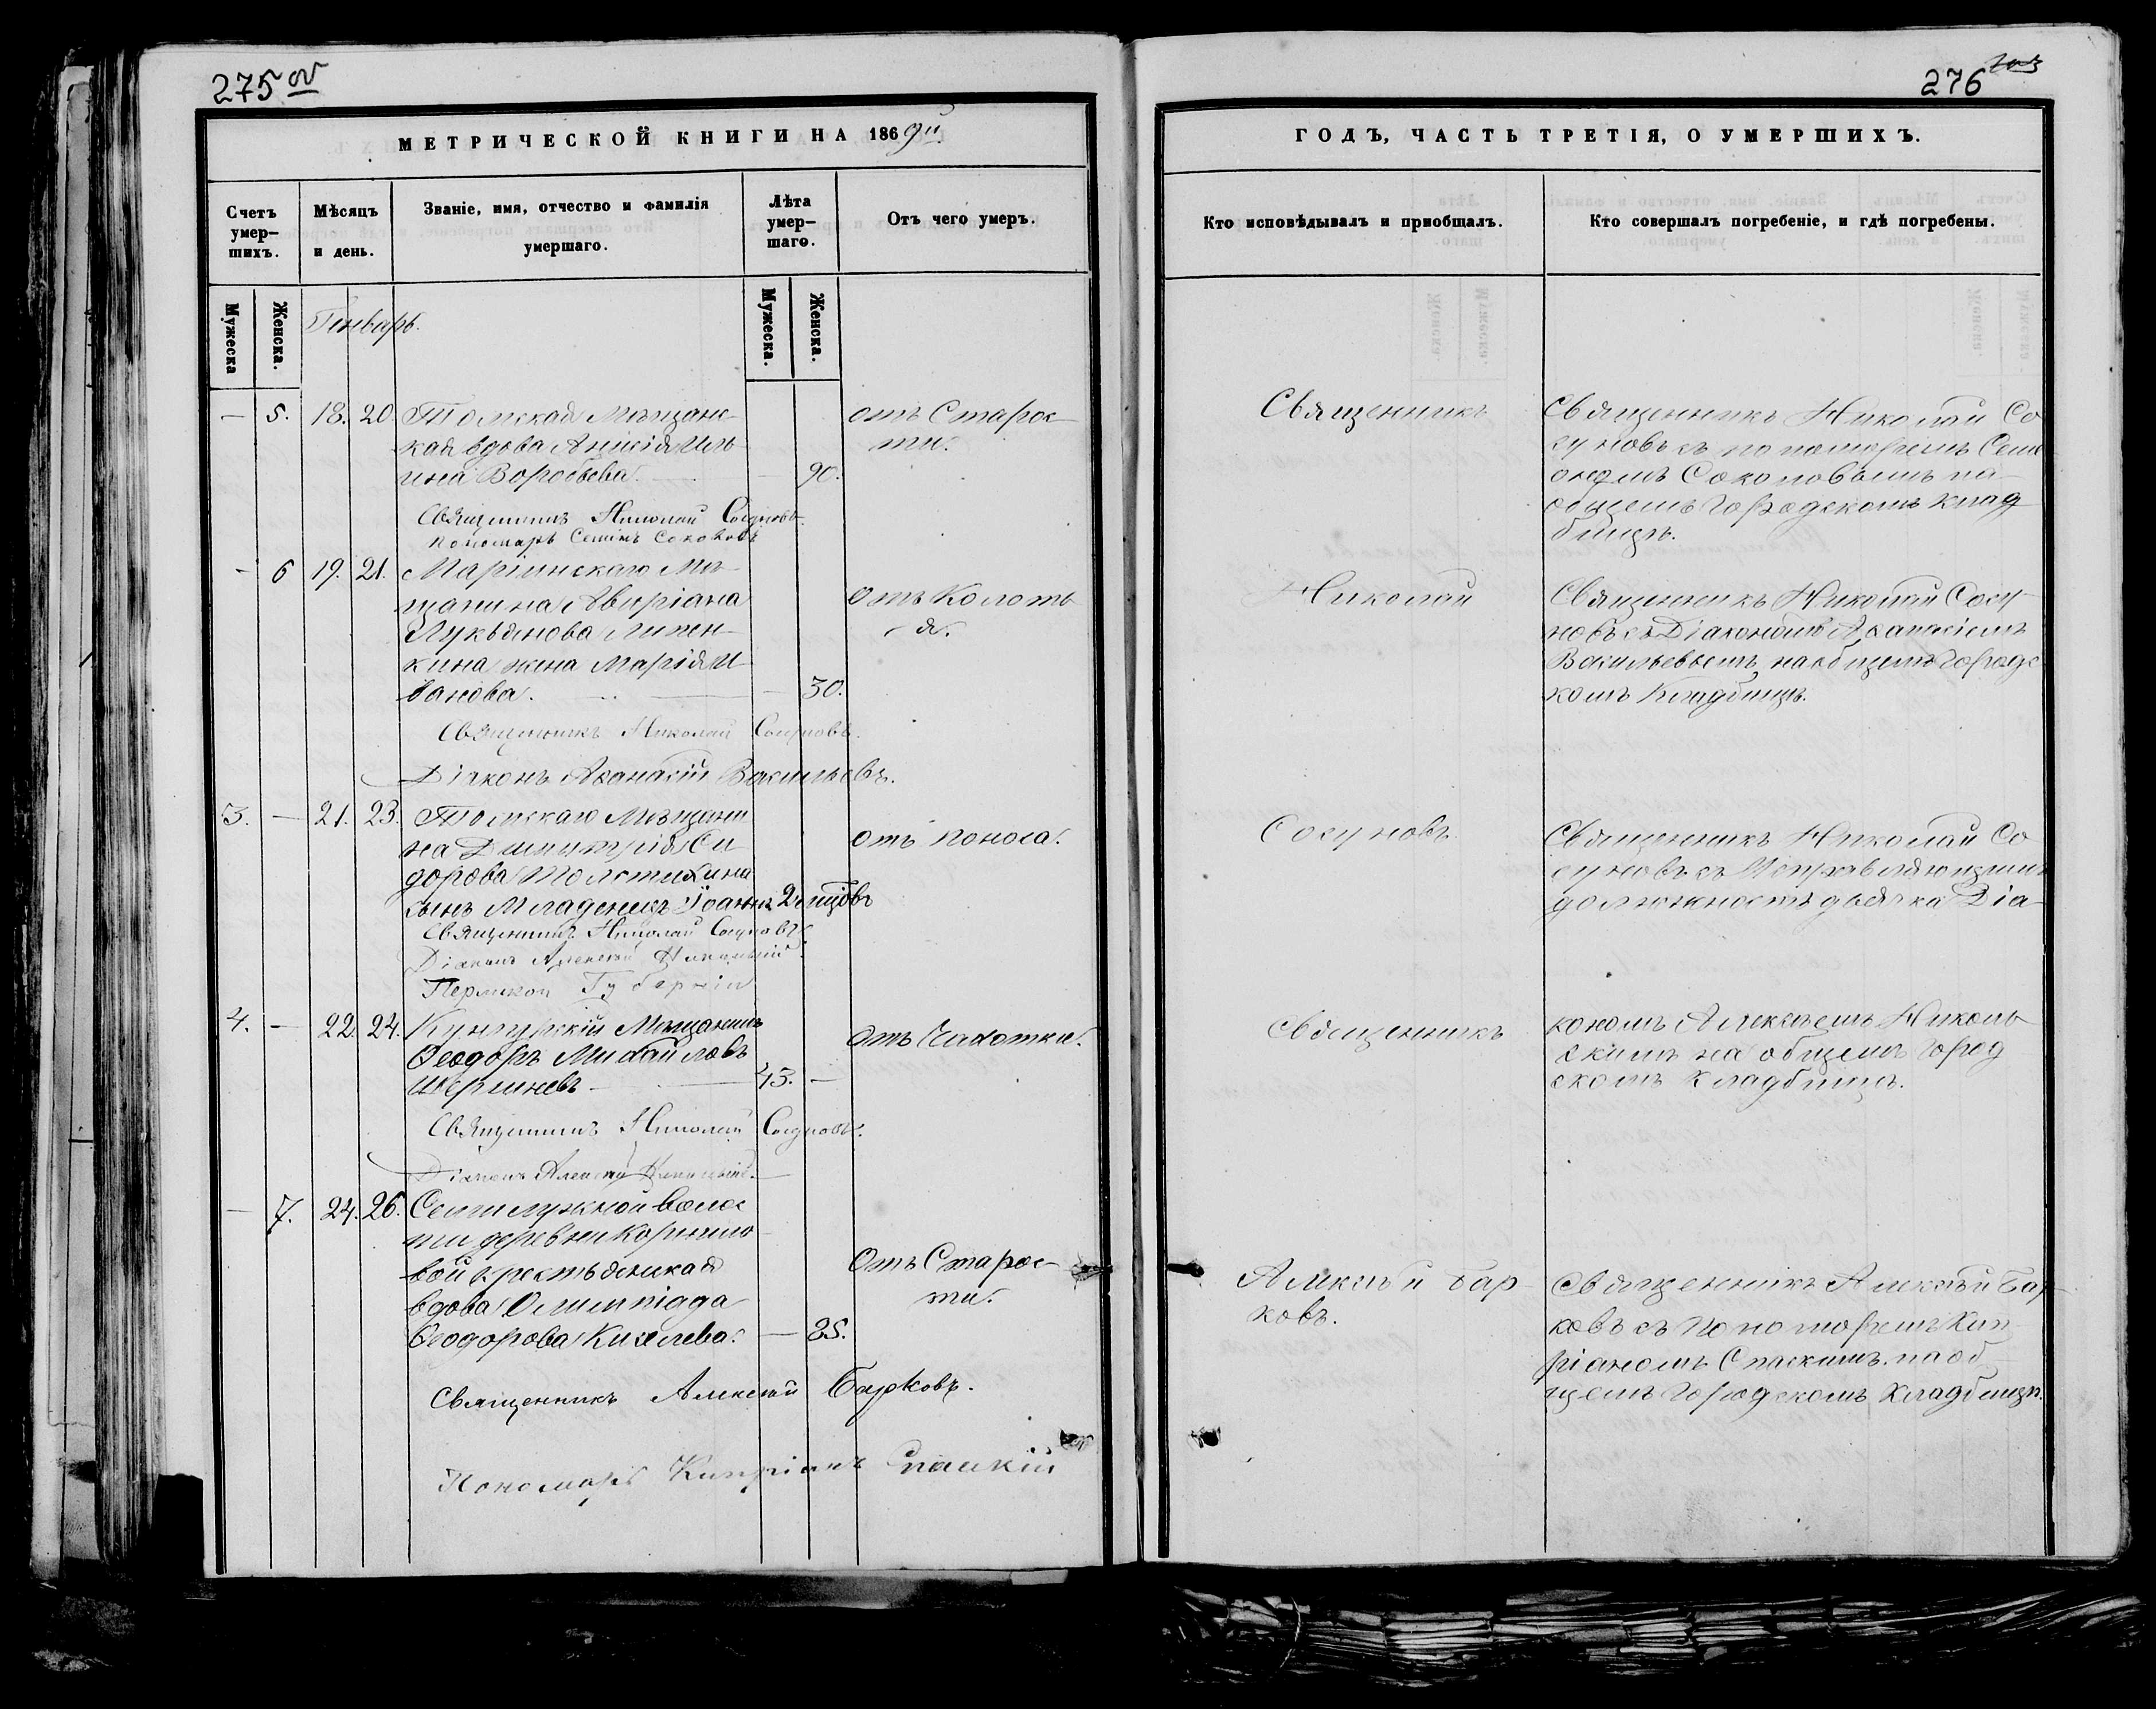 275 об
МЕТРИЧЕСКОЙ КНИГИ НА 1869й
Счетъ умер-шихъ.
Мѣсяцъ и день.
Званіе, имя, отчество и фамилія умершаго.
Лѣта умер-шаго.
Отъ чего умеръ.
Мужеска
Женска.
Мужеска.
Женска.
Генварь.
— 5. 18. 20. Томская Мѣщанс- отъ Старос-
кая вдова Анисія Иль- ти.
ина Воробьева. — 90.
Священникъ Николай Сосуновъ.
Пономарь Семенъ Соколовъ
- 6 19. 21. Маріинскаго Мѣ-
щанина Авиріана отъ Колоть
Лукьянова Липен- я.
кина жена Марія И-
ванова. — 30.
Священникъ Николай Сосуновъ.
Діаконъ Аѳанасій Васильевъ.
3. — 21. 23. Томскаго Мѣщани
на Димитрія Си- отъ поноса.
дорова Толстихина
сынъ Младенецъ Іоаннъ 2 мцовъ
Священникъ Николай Сосуновъ
Діаконъ Алексѣй Никольскій
Пермской Губерніи
4. — 22. 24. Кунгурскій Мѣщанинъ отъ Чахотки.
Ѳеодоръ Михайловъ
43. —
Священникъ Николай Сосуновъ.
Діаконъ Алексѣй Никольскій.
— 7. 24. 26. Семилужной Волос
ти деревни Корнило
вой крестьянская отъ Старос-
вдова Олимпіада ти.
Ѳеодорова Киселева. — 85.
Священникъ Алексѣй Барковъ.
Пономарь Кипріанъ Спаскій
276
ГОДЪ, ЧАСТЬ ТРЕТІЯ, О УМЕРШИХЪ.
Кто исповѣдывалъ и пріобщалъ.
Кто совершалъ погребеніе, и гдѣ погребены.
Священникъ Священникъ Николай Со
суновъ съ пономаремъ Семе
ономъ Соколовымъ на
общемъ Городскомъ клад
бищѣ.
Николай Священникъ Николай Сосу-
новъ съ Діакономъ Аѳанасіемъ
Васильевымъ, на общемъ Городс
комъ Кладбищѣ.
Сосуновъ Священникъ Николай Со
суновъ съ Исправляющимъ
должность дьячка Діа-
Священникъ кономъ Алексѣемъ Николь
скимъ на общемъ Город
скомъ кладбищѣ.
Алексѣй Бар- Священникъ Алексѣй Бар-
ковъ. ковъ съ Пономаремъ Кип-
ріаномъ Спаскимъ. на об
щемъ Городскомъ Кладбищѣ.